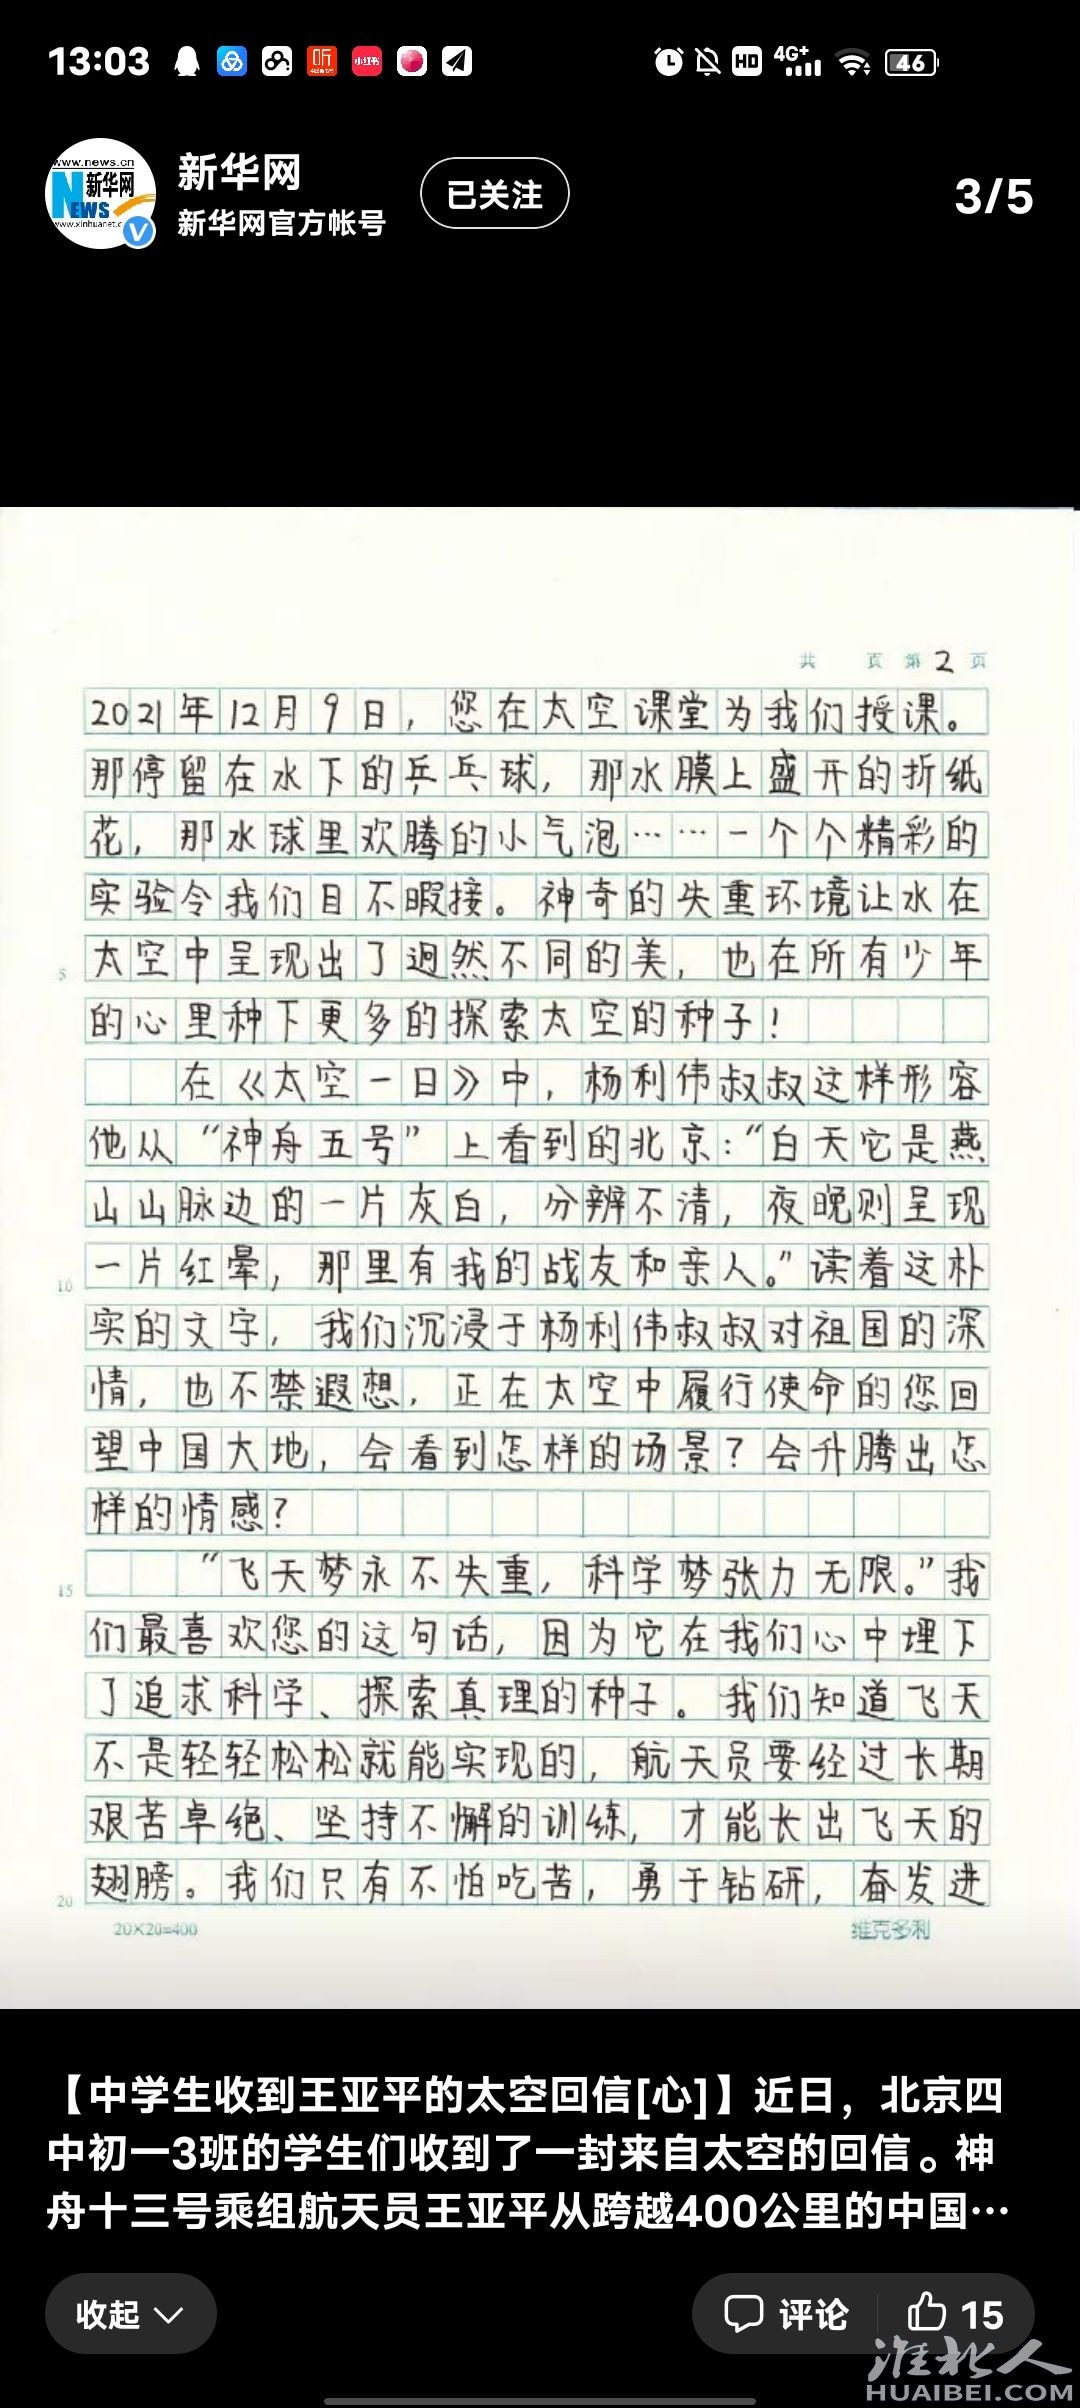 13:03
听
小红书
HD
4G+
46
www.news.cn
新华网
NEWS
www.xinhuanet.c
V
新华网
新华网官方帐号
已关注
3/5
共 页 第 2 页
2021年12月9日，您在太空课堂为我们授课。
那停留在水下的乒乓球，那水膜上盛开的折纸
花，那水球里欢腾的小气泡……一个个精彩的
实验令我们目不暇接。神奇的失重环境让水在
5 太空中呈现出了迥然不同的美，也在所有少年
的心里种下更多的探索太空的种子！
在《太空一日》中，杨利伟叔叔这样形容
他从“神舟五号”上看到的北京：“白天它是燕
山山脉边的一片灰白，分辨不清，夜晚则呈现
10 一片红晕，那里有我的战友和亲人。”读着这朴
实的文字，我们沉浸于杨利伟叔叔对祖国的深
情，也不禁遐想，正在太空中履行使命的您回
望中国大地，会看到怎样的场景？会升腾出怎
样的情感？
15 “飞天梦永不失重，科学梦张力无限。”我
们最喜欢您的这句话，因为它在我们心中埋下
了追求科学、探索真理的种子。我们知道飞天
不是轻轻松松就能实现的，航天员要经过长期
艰苦卓绝、坚持不懈的训练，才能长出飞天的
20 翅膀。我们只有不怕吃苦，勇于钻研，奋发进
20×20=400 维克多利
【中学生收到王亚平的太空回信[心]】近日，北京四
中初一3班的学生们收到了一封来自太空的回信。神
舟十三号乘组航天员王亚平从跨越400公里的中国…
收起
评论
15
淮北人
HUAIBEI.COM